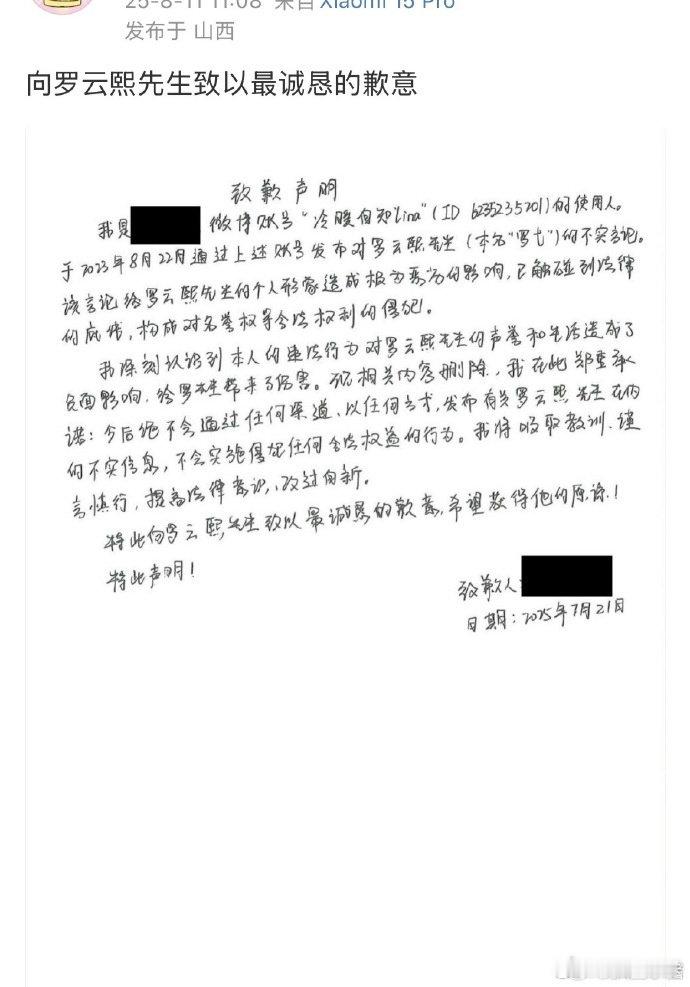 25-8-11 11:08 来自 Xiaomi 15 Pro
发布于 山西
向罗云熙先生致以最诚恳的歉意
致歉声明
我是 微博账号“冷暖自知Lina”(ID 6235235201)的使用人。
于2023年8月22日通过上述账号发布对罗云熙先生(本名“罗弋”)的不实言论。
该言论给罗云熙先生的个人形象造成极为恶劣的影响,已触碰到法律
的底线,构成对名誉权等合法权利的侵犯。
我深刻认识到本人的违法行为对罗云熙先生的声誉和生活造成了
负面影响,给罗先生带来了伤害。现相关内容删除,我在此郑重承
诺:今后绝不会通过任何渠道、以任何方式,发布有关罗云熙先生在内
的不实信息,不会实施侵犯任何合法权益的行为。我将吸取教训、谨
言慎行,提高法律意识、改过自新。
特此向罗云熙先生致以最诚恳的歉意,希望获得他的原谅!
特此声明!
致歉人:
日期:2025年7月21日